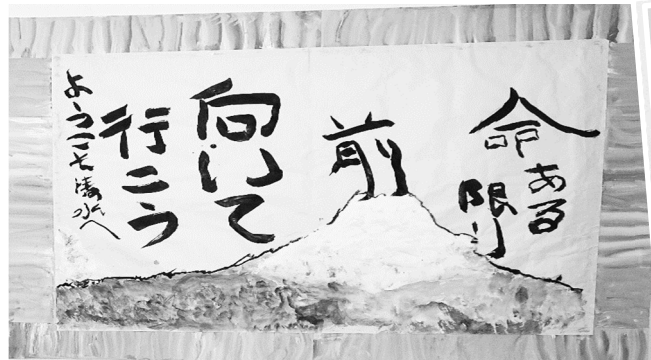 命ある
限り
前
向いて
行こう
ようこそ清水へ